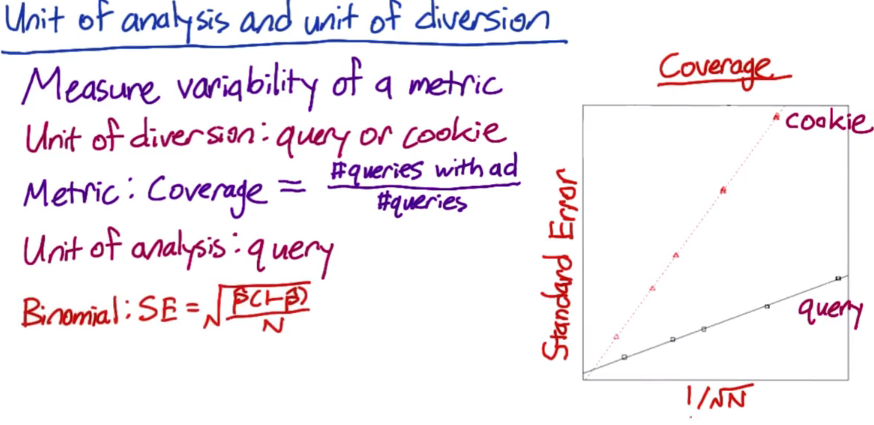 Unit of analysis and unit of diversion
Measure variability of a metric
Unit of diversion: query or cookie
Metric: Coverage = #queries with ad / #queries
Unit of analysis: query
Binomial: SE = √(p̂(1-p̂)/N)
Coverage
cookie
query
Standard Error
1/√N